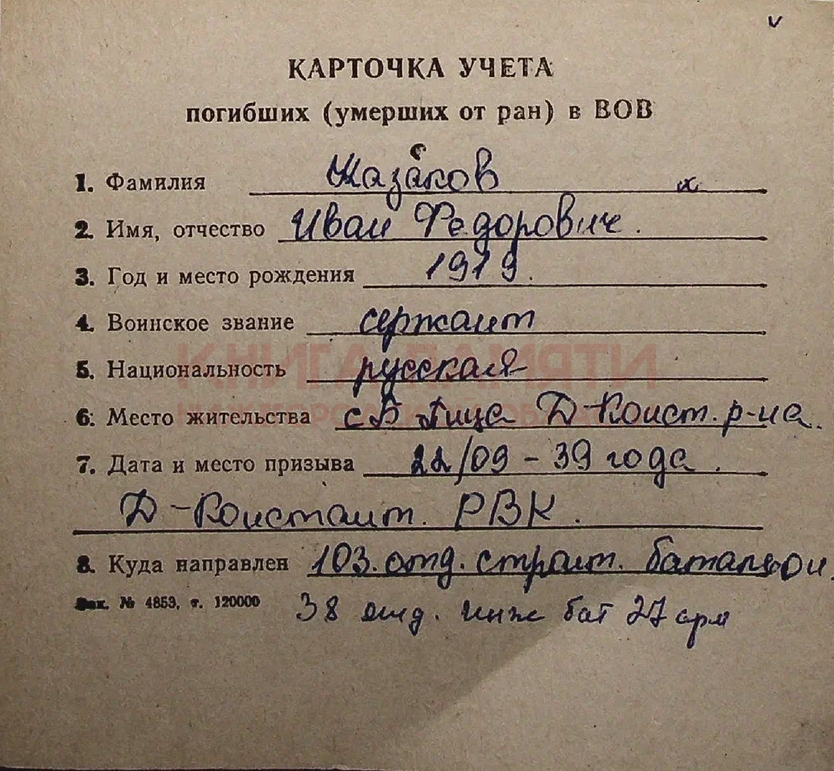 КАРТОЧКА УЧЕТА
погибших (умерших от ран) в ВОВ
1. Фамилия Казаков
2. Имя, отчество Иван Федорович.
3. Год и место рождения 1919.
4. Воинское звание сержант
5. Национальность русская
КНИГА ПАМЯТИ
6. Место жительства с Б Пица Д-Конст. р-на.
7. Дата и место призыва 22/09 - 39 года.
Д-Констант. РВК.
8. Куда направлен 103. отд. строит. батальон.
Зак. № 4853, т. 120000 38 отд. инж бат 27 арм